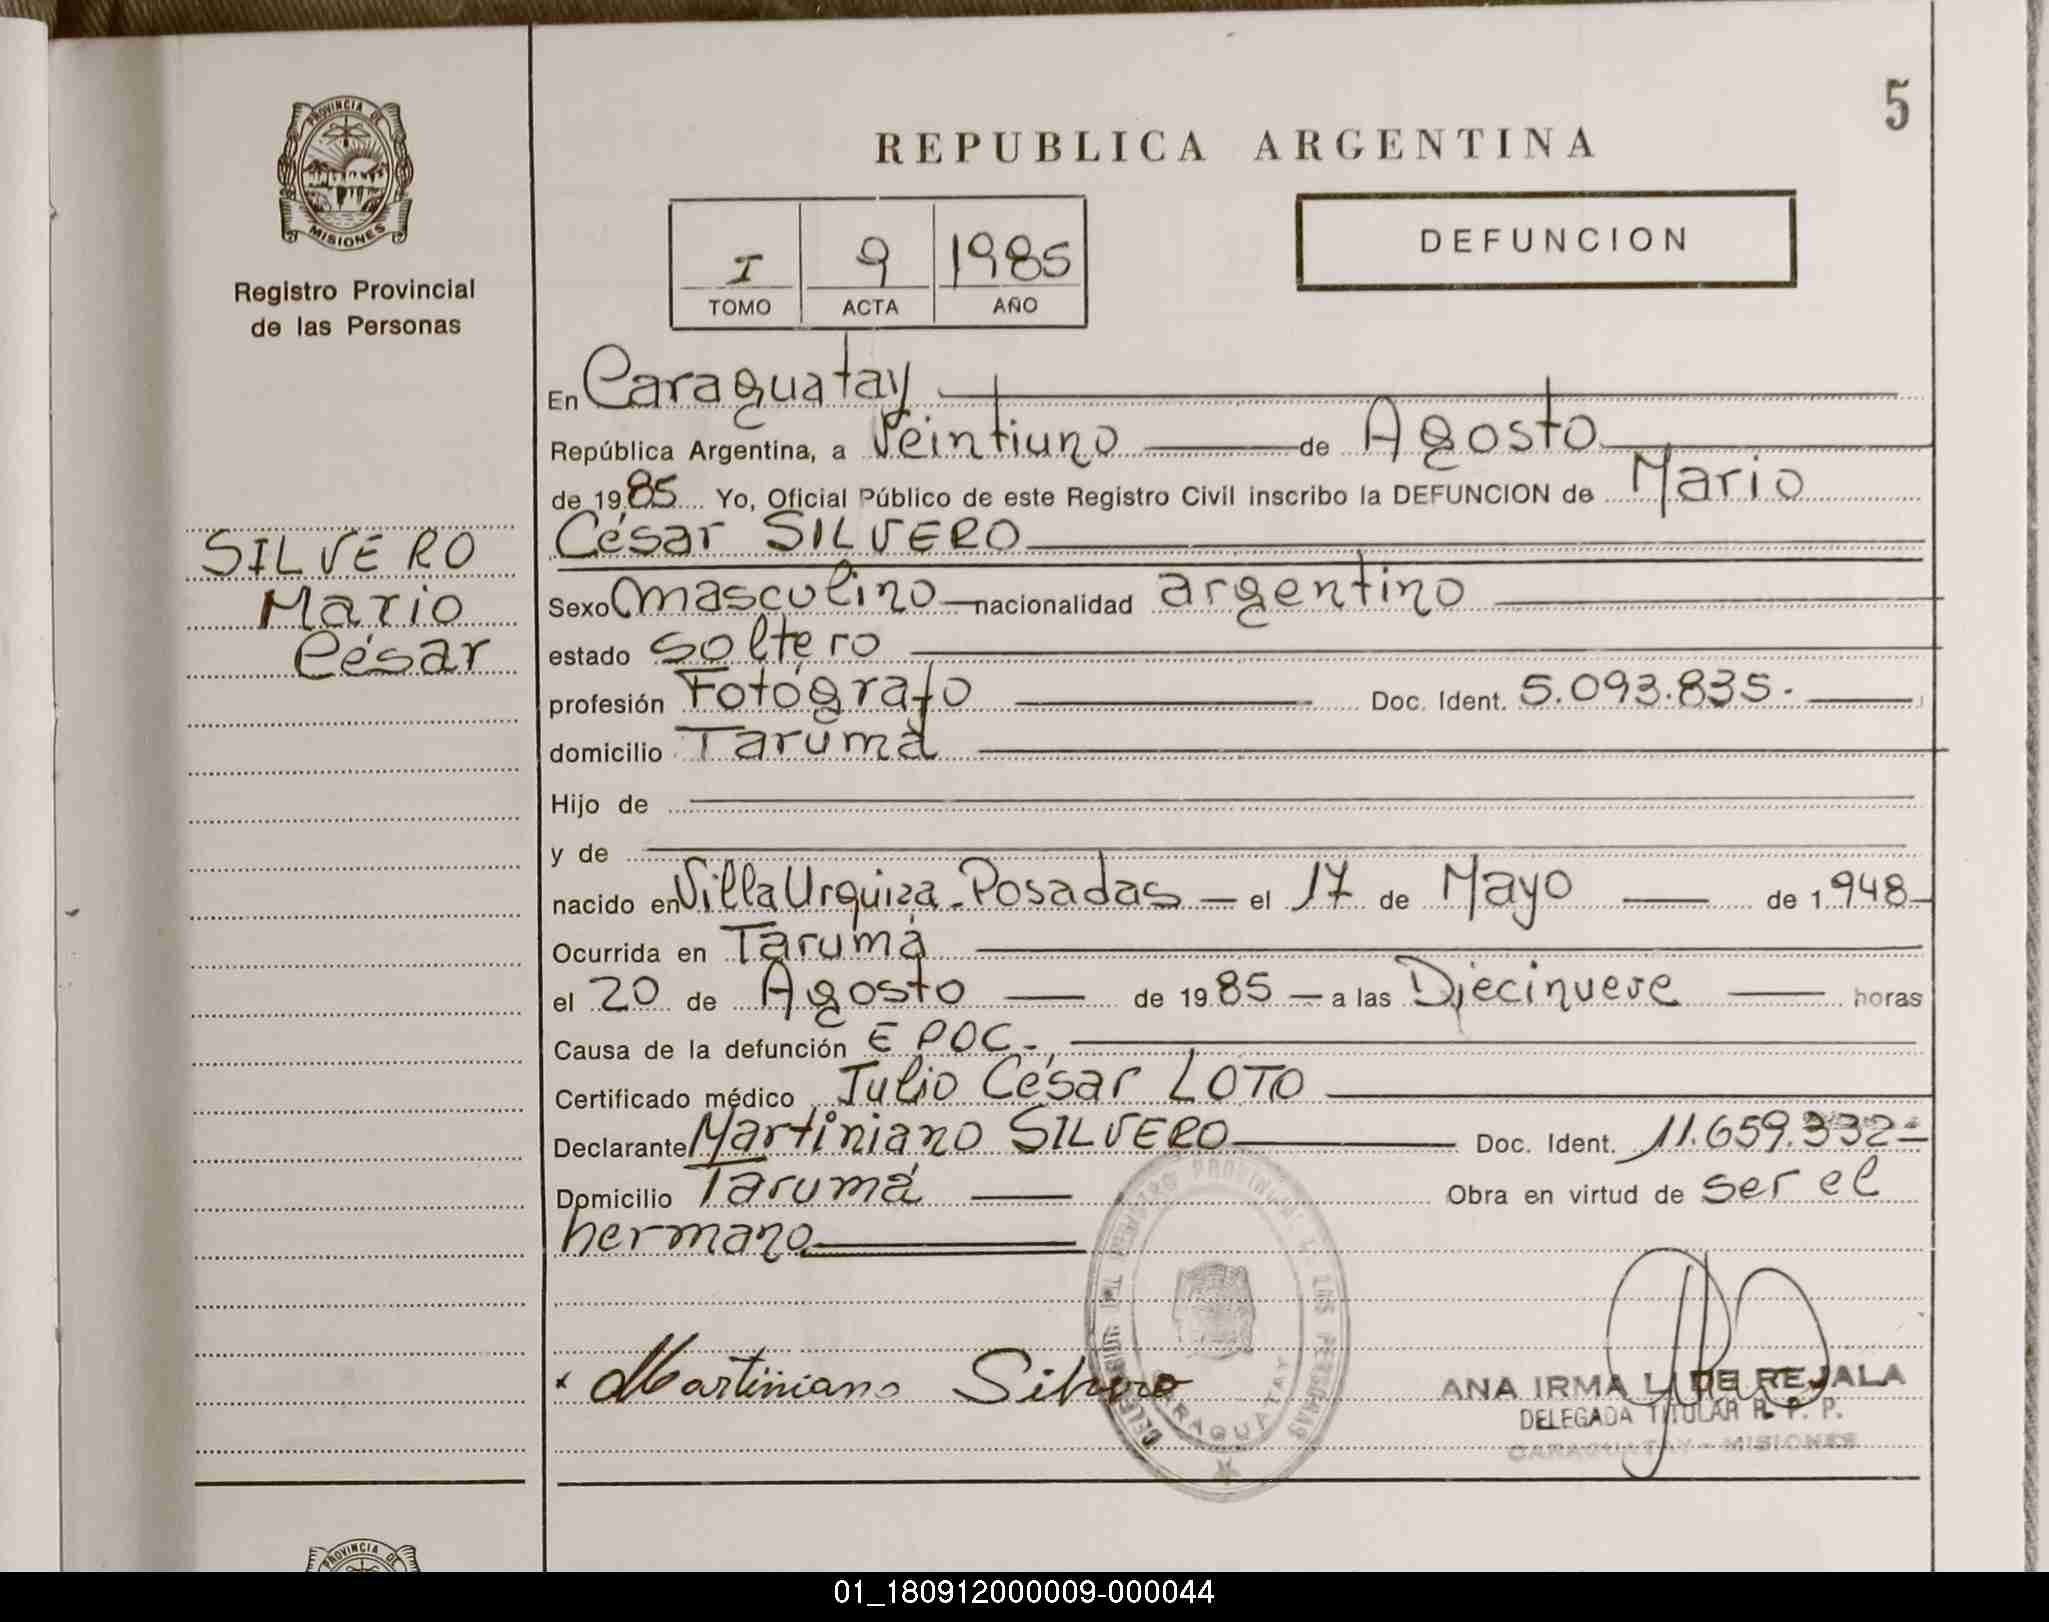 5
PROVINCIA DE
MISIONES
Registro Provincial
de las Personas
REPUBLICA ARGENTINA
I 9 1985
TOMO ACTA AÑO
DEFUNCION
SILVERO
Mario
César
En Caraguatay
República Argentina, a Veintiuno de Agosto
de 1985 Yo, Oficial Público de este Registro Civil inscribo la DEFUNCION de Mario
César SILVERO
Sexo masculino nacionalidad argentino
estado soltero
profesión Fotógrafo Doc. Ident. 5.093.835.
domicilio Tarumá
Hijo de
y de
nacido en Villa Urquiza - Posadas - el 17 de Mayo de 1948
Ocurrida en Tarumá
el 20 de Agosto de 1985 - a las Diecinueve horas
Causa de la defunción E POC.-
Certificado médico Julio César LOTO
Declarante Martiniano SILVERO Doc. Ident. 11.659.332-
Domicilio Tarumá Obra en virtud de ser el
hermano
x Martiniano Silvero
DELEGACION DEL REGISTRO PROVINCIAL DE LAS PERSONAS
CARAGUATAY
ANA IRMA L. DE REJALA
DELEGADA TITULAR R. P. P.
CARAGUATAY - MISIONES
PROVINCIA DE
01_180912000009-000044